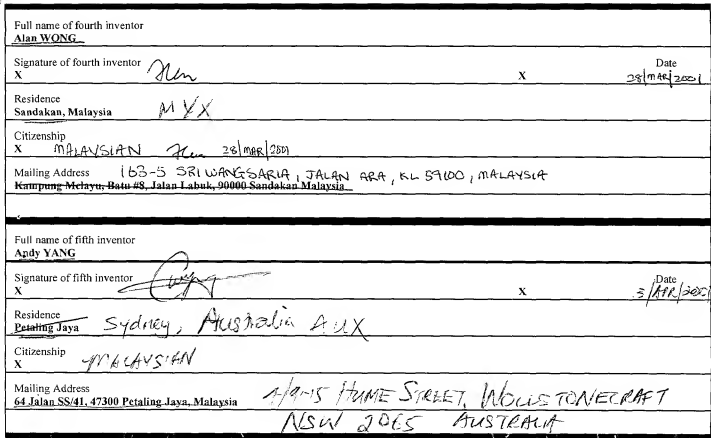 Full name of fourth inventor
Alan WONG
Signature of fourth inventor
X X Date 28/MAR/2001
Residence
Sandakan, Malaysia MYX
Citizenship
X MALAYSIAN 28/MAR/2001
Mailing Address 163-5 SRI WANGSARIA, JALAN ARA, KL 59100, MALAYSIA
Kampung Melayu, Batu #8, Jalan Labuk, 90000 Sandakan Malaysia
Full name of fifth inventor
Andy YANG
Signature of fifth inventor
X X Date 3/APR/2001
Residence
Petaling Jaya Sydney, Australia AUX
Citizenship
X MALAYSIAN
Mailing Address
64 Jalan SS/41, 47300 Petaling Jaya, Malaysia 1/9-15 HUME STREET, WOLLSTONECRAFT
NSW 2065 AUSTRALIA